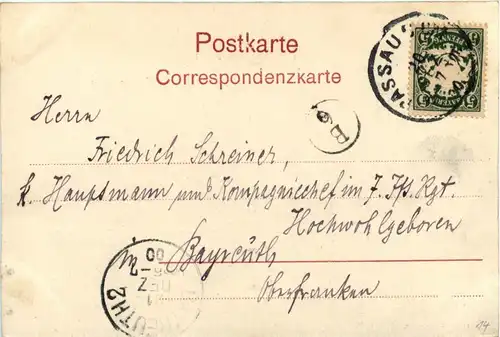 Postkarte
Correspondenzkarte
PASSAU
Herrn
Friedrich Schreiner,
k. Hauptmann und Kompagniechef im 7. Jf. Rgt.
Hochwohlgeboren
in Bayreuth
Oberfranken
BAYERN
5
00
DEZ
14